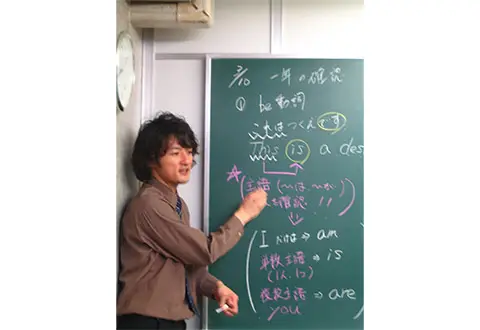 2/10 一年の確認
① be動詞
これはつくえです。
This is a des
☆(主語(〜は、〜が)
を確認!!
I だけは ⇒ am
単数主語 ⇒ is
(1人、1つ)
複数主語 ⇒ are
you